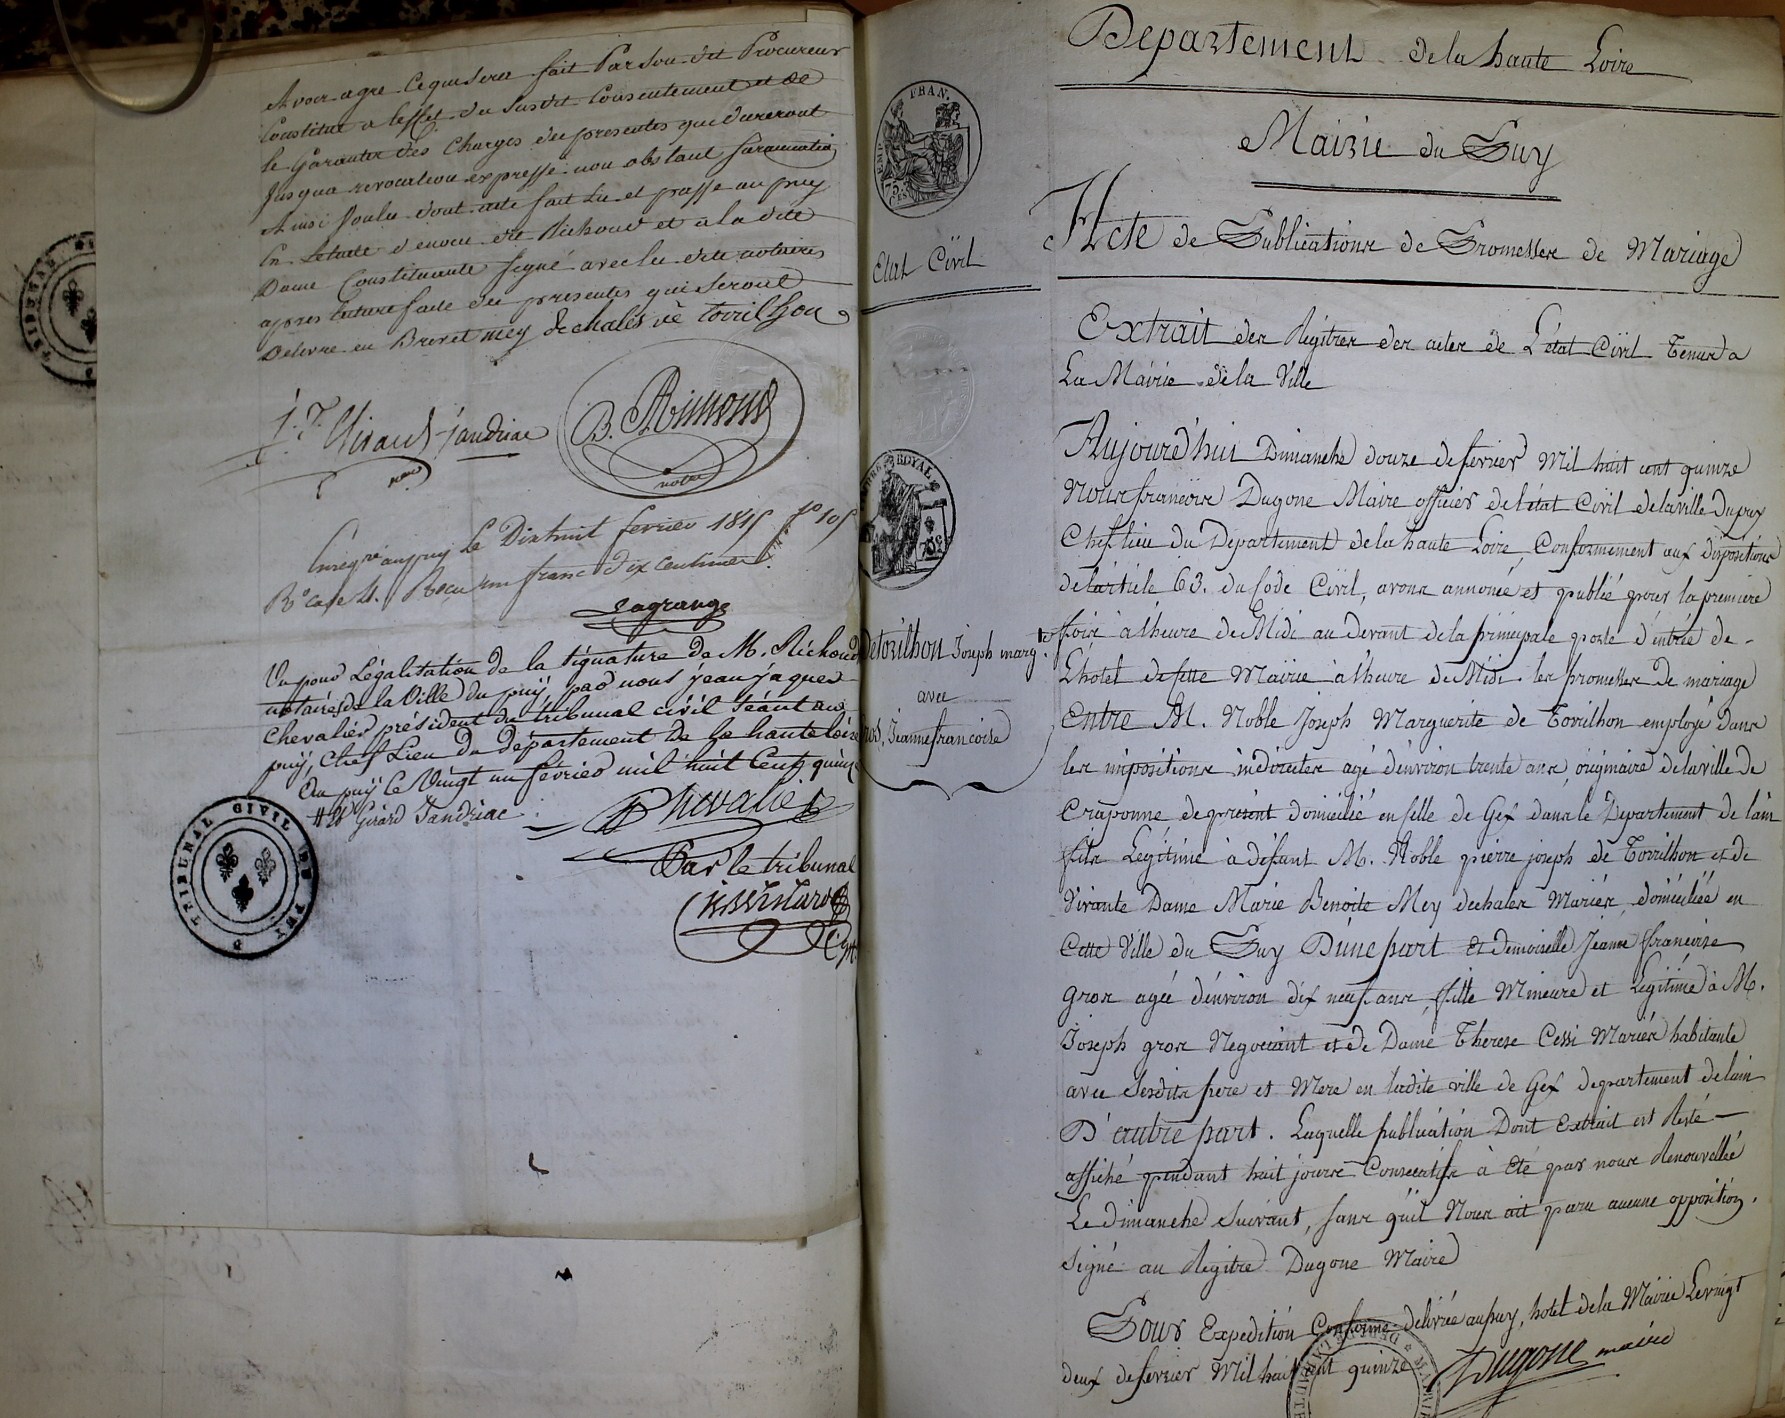 A voir agre Ce qui sera fait Par son dit Procureur
Constitué a leffet du susdit Consentement et de
le Garantir des Charges des presentes qui dureront
Jusqua revocation expresse non obstant surannation
Ainsi Voulu dont acte fait Lu et passé au puy
En Letude d'enocu dit Richond et a la dite
Dame Constituante signé avec les dits notaires
apres lecture faite des presentes qui seront
Delivré en Brevet mey de chales vè torrilhon
j. J. Girard-jandriac
not
B. Richond
notre
Enregré au puy Le Dixhuit fevrier 1815 fo 105
Ro case 4. Recu un franc dix Centimes.
Lagrange
Vu pour Légalisation de la signature de M. Richond
notaires de la Ville du puÿ, par nous jean jaques
Chevalier président du tribunal civil séant au
puÿ, Chef Lieu du département de la haute loire
Au puÿ le Vingt un février mil huit Cent quinze
# & Girard Jandriac
Chevalier
Par le tribunal
TRIBUNAL CIVIL DU PUY
EMP. FRAN.
75
CES
Etat Civil
TIMBRE ROYAL
75c
deTorilhon Joseph marg.te
avec
gros, Jeanne francoise
Departement de la haute Loire
Mairie du Puy
Acte de Publications de Promesses de Mariage
Extrait des Régitres des actes de L'état Civil Tenus a
La Mairie de la Ville
Aujourd'hui Dimanche douze de fevrier Mil huit cent quinze
Nous francois Dugone Maire officier de l'état Civil de la ville Du puy
Chef lieu du Departement de la haute Loire, Conformement aux dispositions
de l'article 63. du Code Civil, avons annoncé et publié pour la premiere
fois à l'heure de Midi au devant de la principale porte d'entrée de
L'hotel de cette Mairie à l'heure de Midi. les promesses de mariage
Entre M. Noble Joseph Marguerite de Torrilhon employé dans
les impositions indirectes agé d'environ trente ans, originaire de la ville de
Craponne de présent domicilié en celle de Gex dans le Departement de l'ain
fils Legitime à defunt M. Noble pierre joseph de Torrilhon et de
Vivante Dame Marie Benoite Mey dechales Mariés, domiciliée en
Cette Ville du Puy D'une part et demoiselle Jeanne francoise
Gros agée d'environ dix neuf ans, fille Mineure et Légitime à M.
Joseph gros Negociant et de Dame Therese Cessi Mariés habitante
avec Sesdits pere et Mere en ladite ville de Gex departement de lain
D'autre part. Laquelle publication Dont Extrait est Resté
affiché pendant huit jours Consecutifs à Eté par nous Renouvellée
Le dimanche Suivant, sans qu'il Nous ait paru aucune opposition.
Signé au Regitre Dugone Maire
Pour Expedition Conforme delivrée au puy, hotel de la Mairie Le vingt
deux de fevrier Mil huit cent quinze
Dugone maire